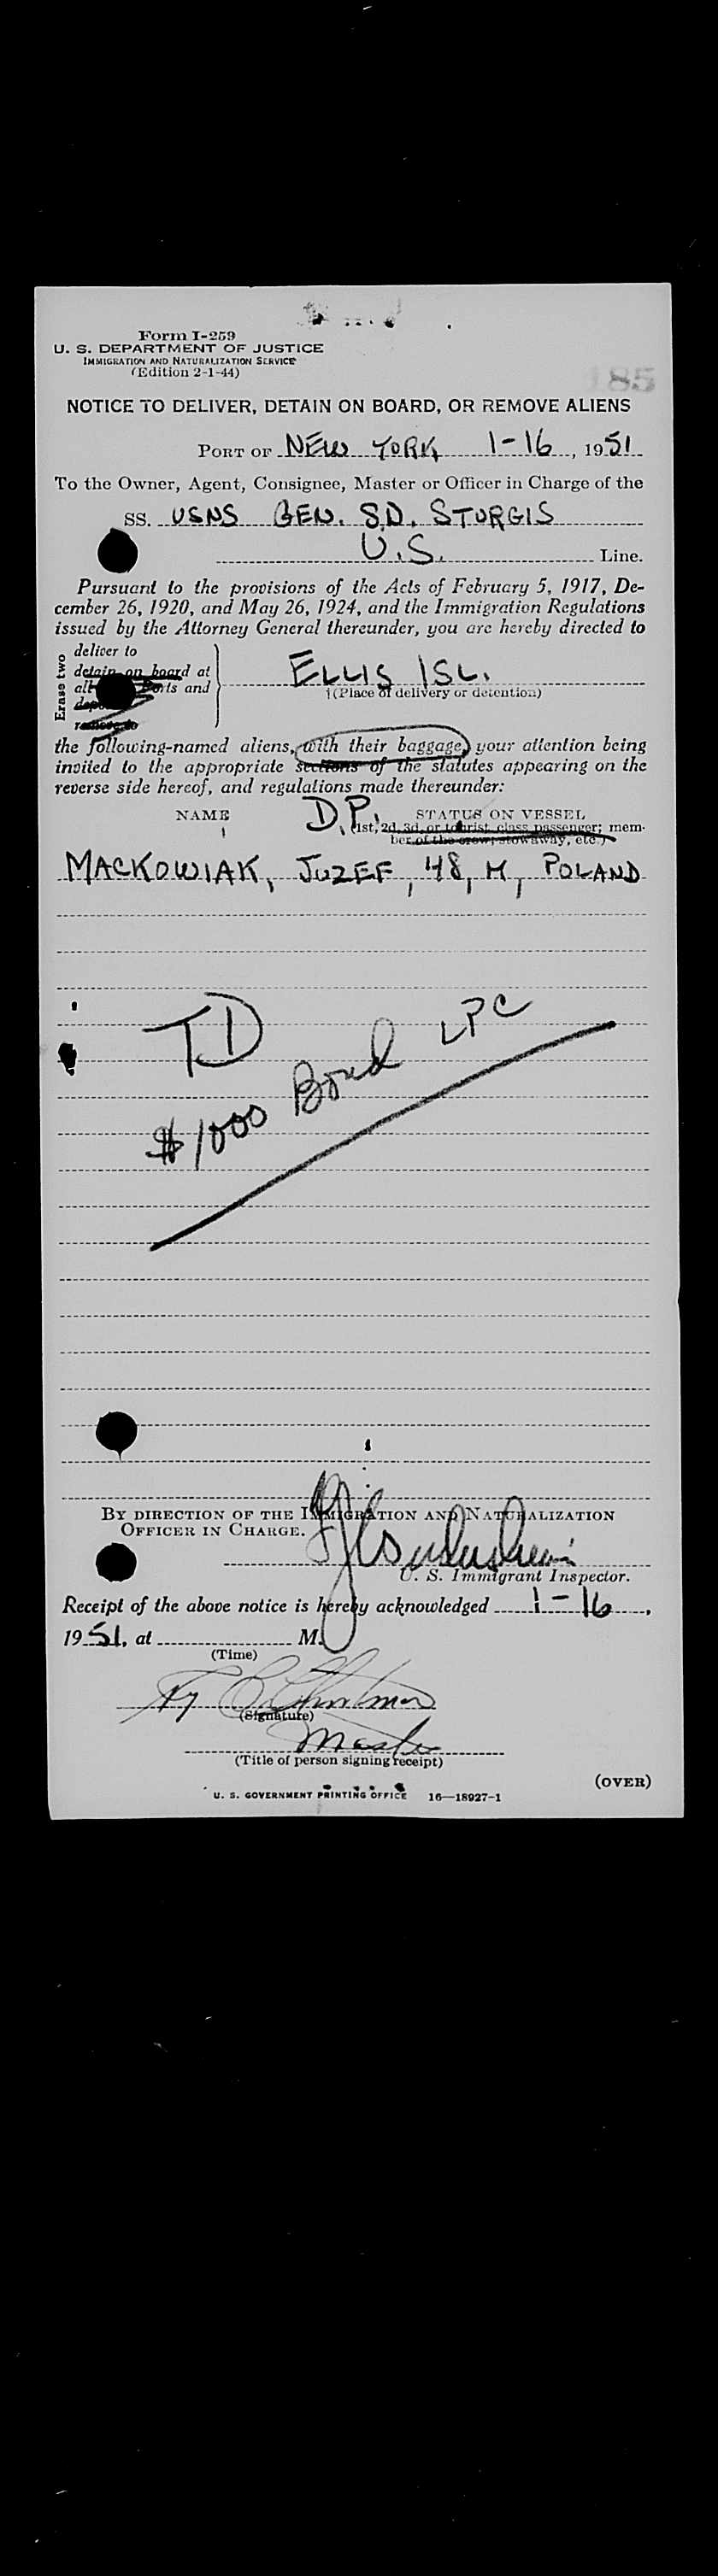 185
Form I-259
U. S. DEPARTMENT OF JUSTICE
IMMIGRATION AND NATURALIZATION SERVICE
(Edition 2-1-44)
NOTICE TO DELIVER, DETAIN ON BOARD, OR REMOVE ALIENS
PORT OF NEW YORK 1-16, 1951
To the Owner, Agent, Consignee, Master or Officer in Charge of the
SS. USNS GEN. S.D. STURGIS
U.S. Line.
Pursuant to the provisions of the Acts of February 5, 1917, De-
cember 26, 1920, and May 26, 1924, and the Immigration Regulations
issued by the Attorney General thereunder, you are hereby directed to
Erase two
deliver to
detain on board at
all ports and
remove to
ELLIS ISL.
(Place of delivery or detention)
the following-named aliens, with their baggage, your attention being
invited to the appropriate sections of the statutes appearing on the
reverse side hereof, and regulations made thereunder:
NAME D.P. STATUS ON VESSEL
(1st, 2d, 3d, or tourist class passenger; mem-
ber of the crew, stowaway, etc.)
MACKOWIAK, JUZEF, 48, M, POLAND
TD
$1000 Bond LPC
BY DIRECTION OF THE IMMIGRATION AND NATURALIZATION
OFFICER IN CHARGE.
U. S. Immigrant Inspector.
Receipt of the above notice is hereby acknowledged 1-16,
1951, at M.
(Time)
(Signature)
Master
(Title of person signing receipt)
(OVER)
U. S. GOVERNMENT PRINTING OFFICE 16—18927-1